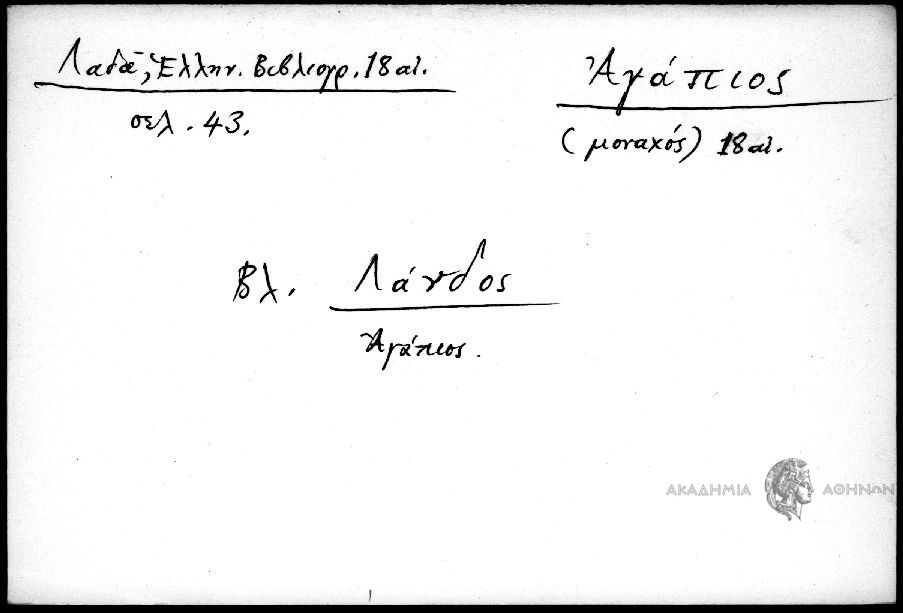 Λαδᾶ, Ἑλλην. Βιβλιογρ. 18 αἰ.
σελ. 43.
Ἀγάπιος
(μοναχός) 18 αἰ.
Βλ. Λάνδος
Ἀγάπιος.
ΑΚΑΔΗΜΙΑ ΑΘΗΝΩΝ